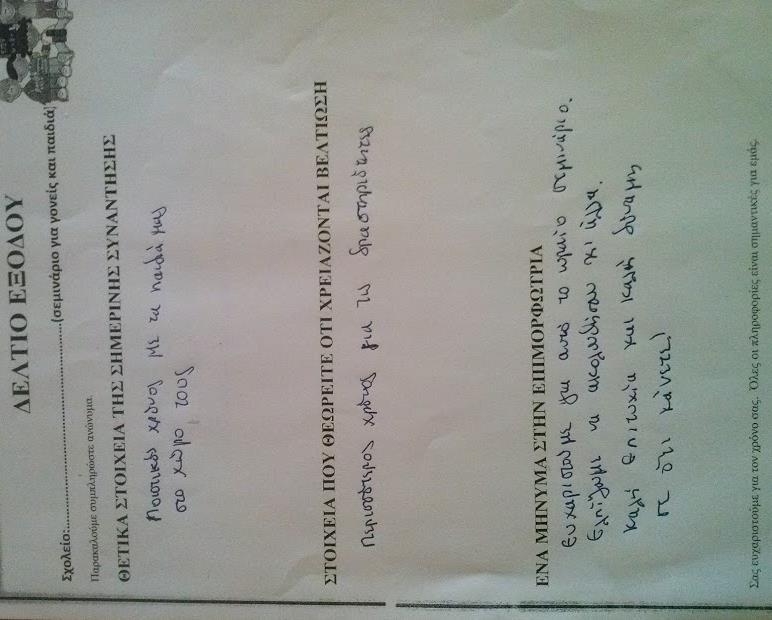 ΔΕΛΤΙΟ ΕΞΟΔΟΥ
Σχολείο:..........................................................(σεμινάριο για γονείς και παιδιά)
Παρακαλούμε συμπληρώστε ανώνυμα.
ΘΕΤΙΚΑ ΣΤΟΙΧΕΙΑ ΤΗΣ ΣΗΜΕΡΙΝΗΣ ΣΥΝΑΝΤΗΣΗΣ
Ποιοτικός χρόνος με τα παιδιά μας
στο χώρο τους
ΣΤΟΙΧΕΙΑ ΠΟΥ ΘΕΩΡΕΙΤΕ ΟΤΙ ΧΡΕΙΑΖΟΝΤΑΙ ΒΕΛΤΙΩΣΗ
Περισσότερος χρόνος για τις δραστηριότητες
ΕΝΑ ΜΗΝΥΜΑ ΣΤΗΝ ΕΠΙΜΟΡΦΩΤΡΙΑ
Ευχαριστούμε για αυτό το ωραίο σεμινάριο.
Ελπίζουμε να ακολουθήσουν κι άλλα.
Καλή επιτυχία και καλή δύναμη
σε ότι κάνετε!
Σας ευχαριστούμε για τον χρόνο σας. Όλες οι πληροφορίες είναι σημαντικές για εμάς.